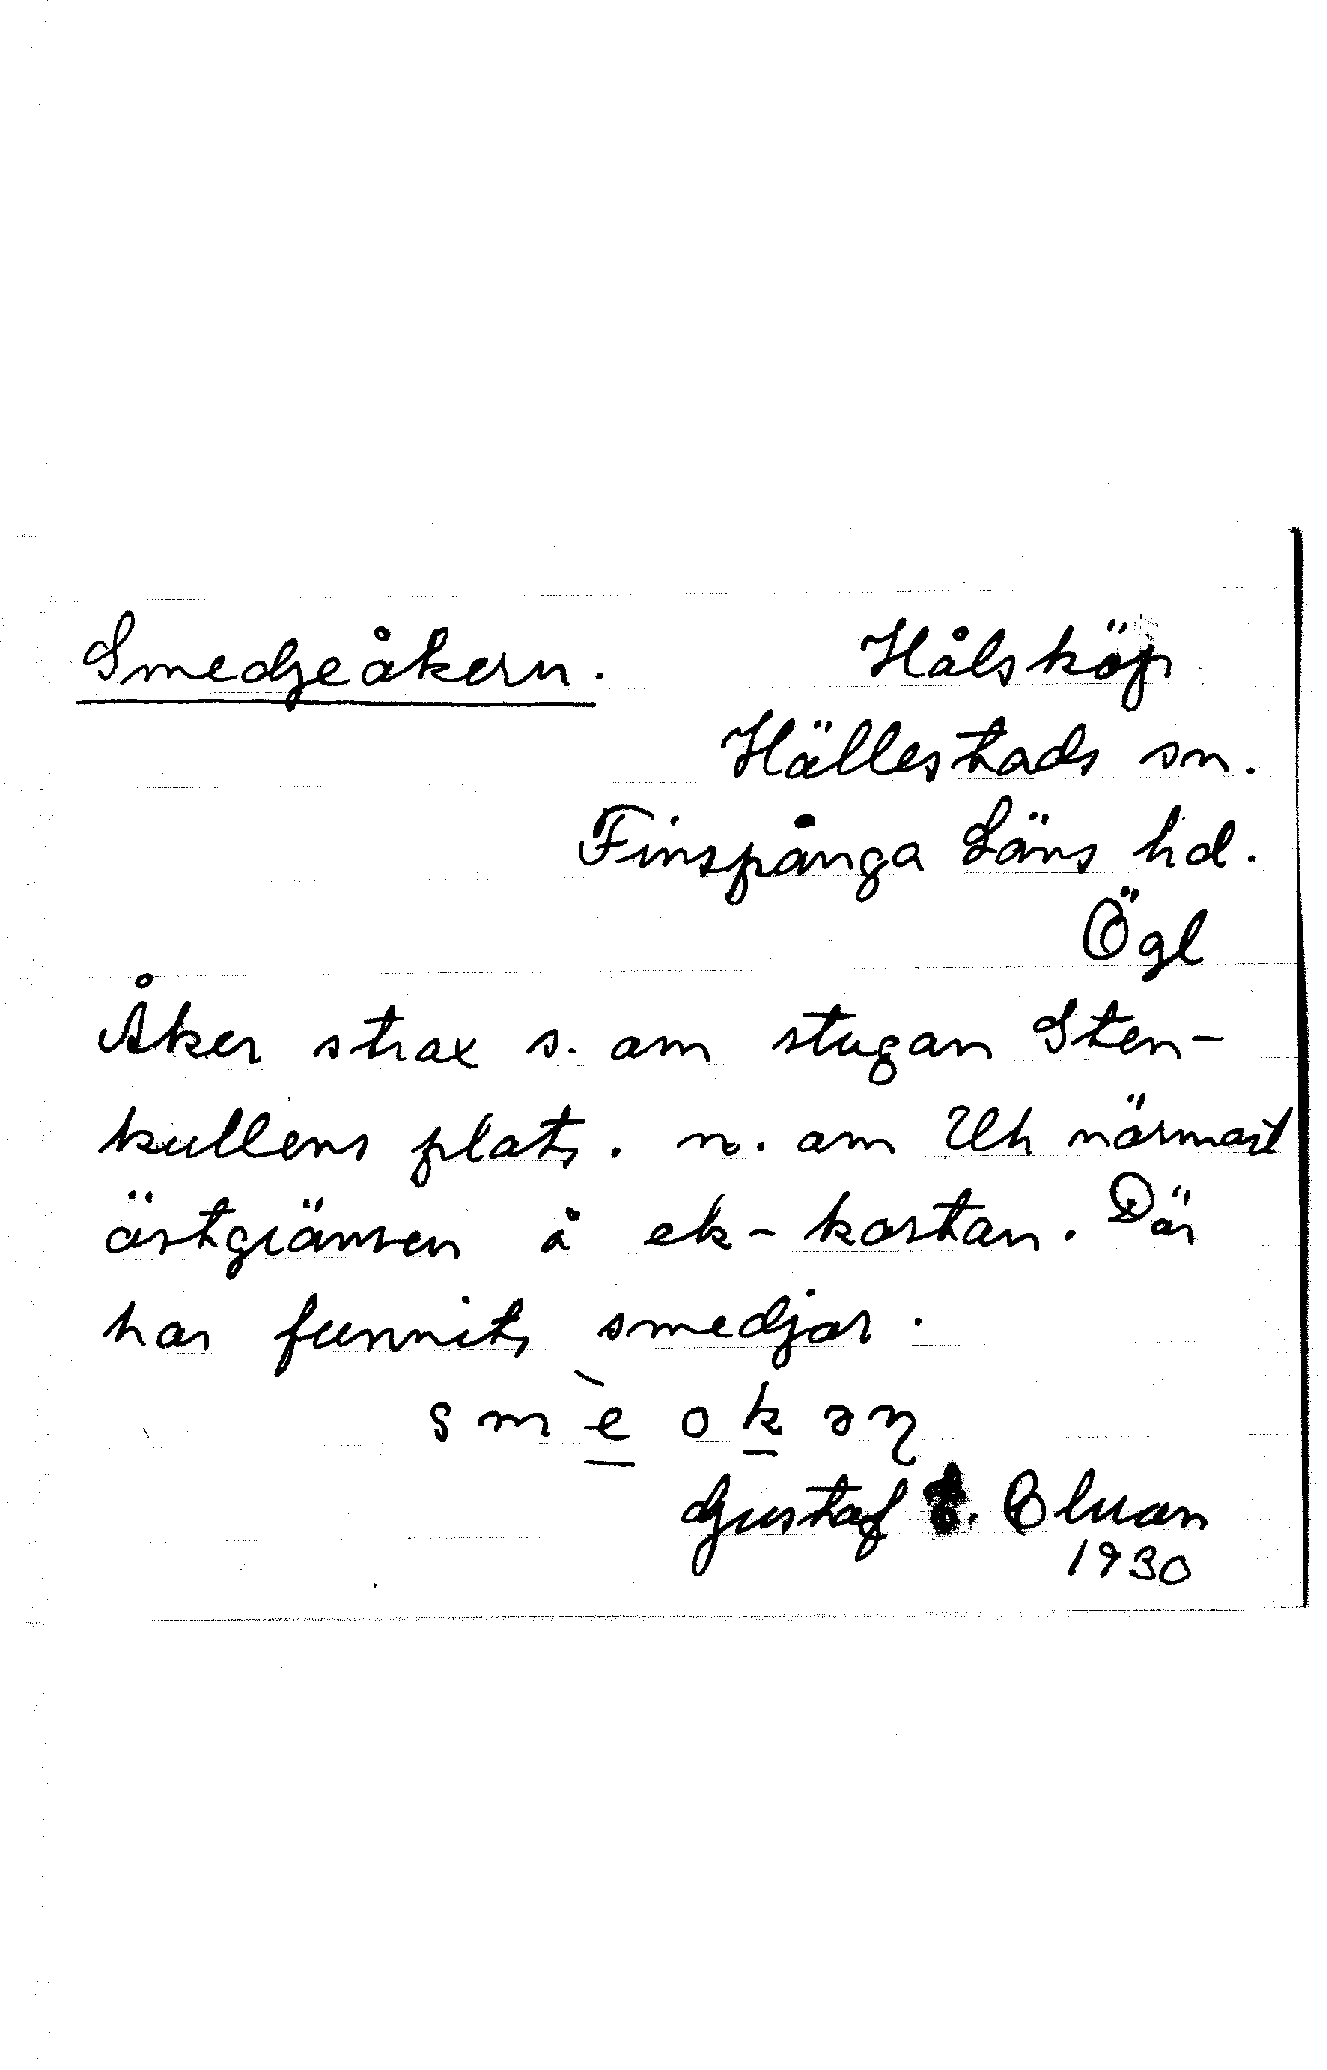 Smedjeåkern. Hålsköp
Hällestads sn.
Finspånga Läns hd.
Ögl
Åker strax s. om stugan Sten-
kullens plats. n. om Uh närmast
östgränsen å ek-kartan. Där
har funnits smedjor.
smèokəɳ
Gustaf
1930